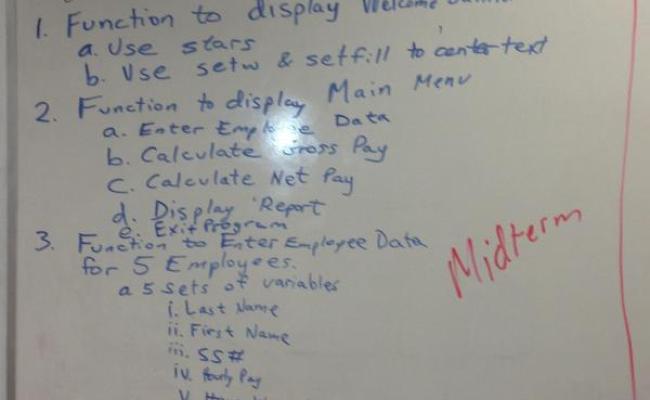 1. Function to display Welcome
a. Use stars
b. Use setw & setfill to center text
2. Function to display Main Menu
a. Enter Employee Data
b. Calculate Gross Pay
C. Calculate Net Pay
d. Display Report
e. Exit Program
3. Function to Enter Employee Data
for 5 Employees.
a 5 sets of variables
i. Last Name
ii. First Name
iii. SS#
iv. Hourly Pay
V.
Midterm